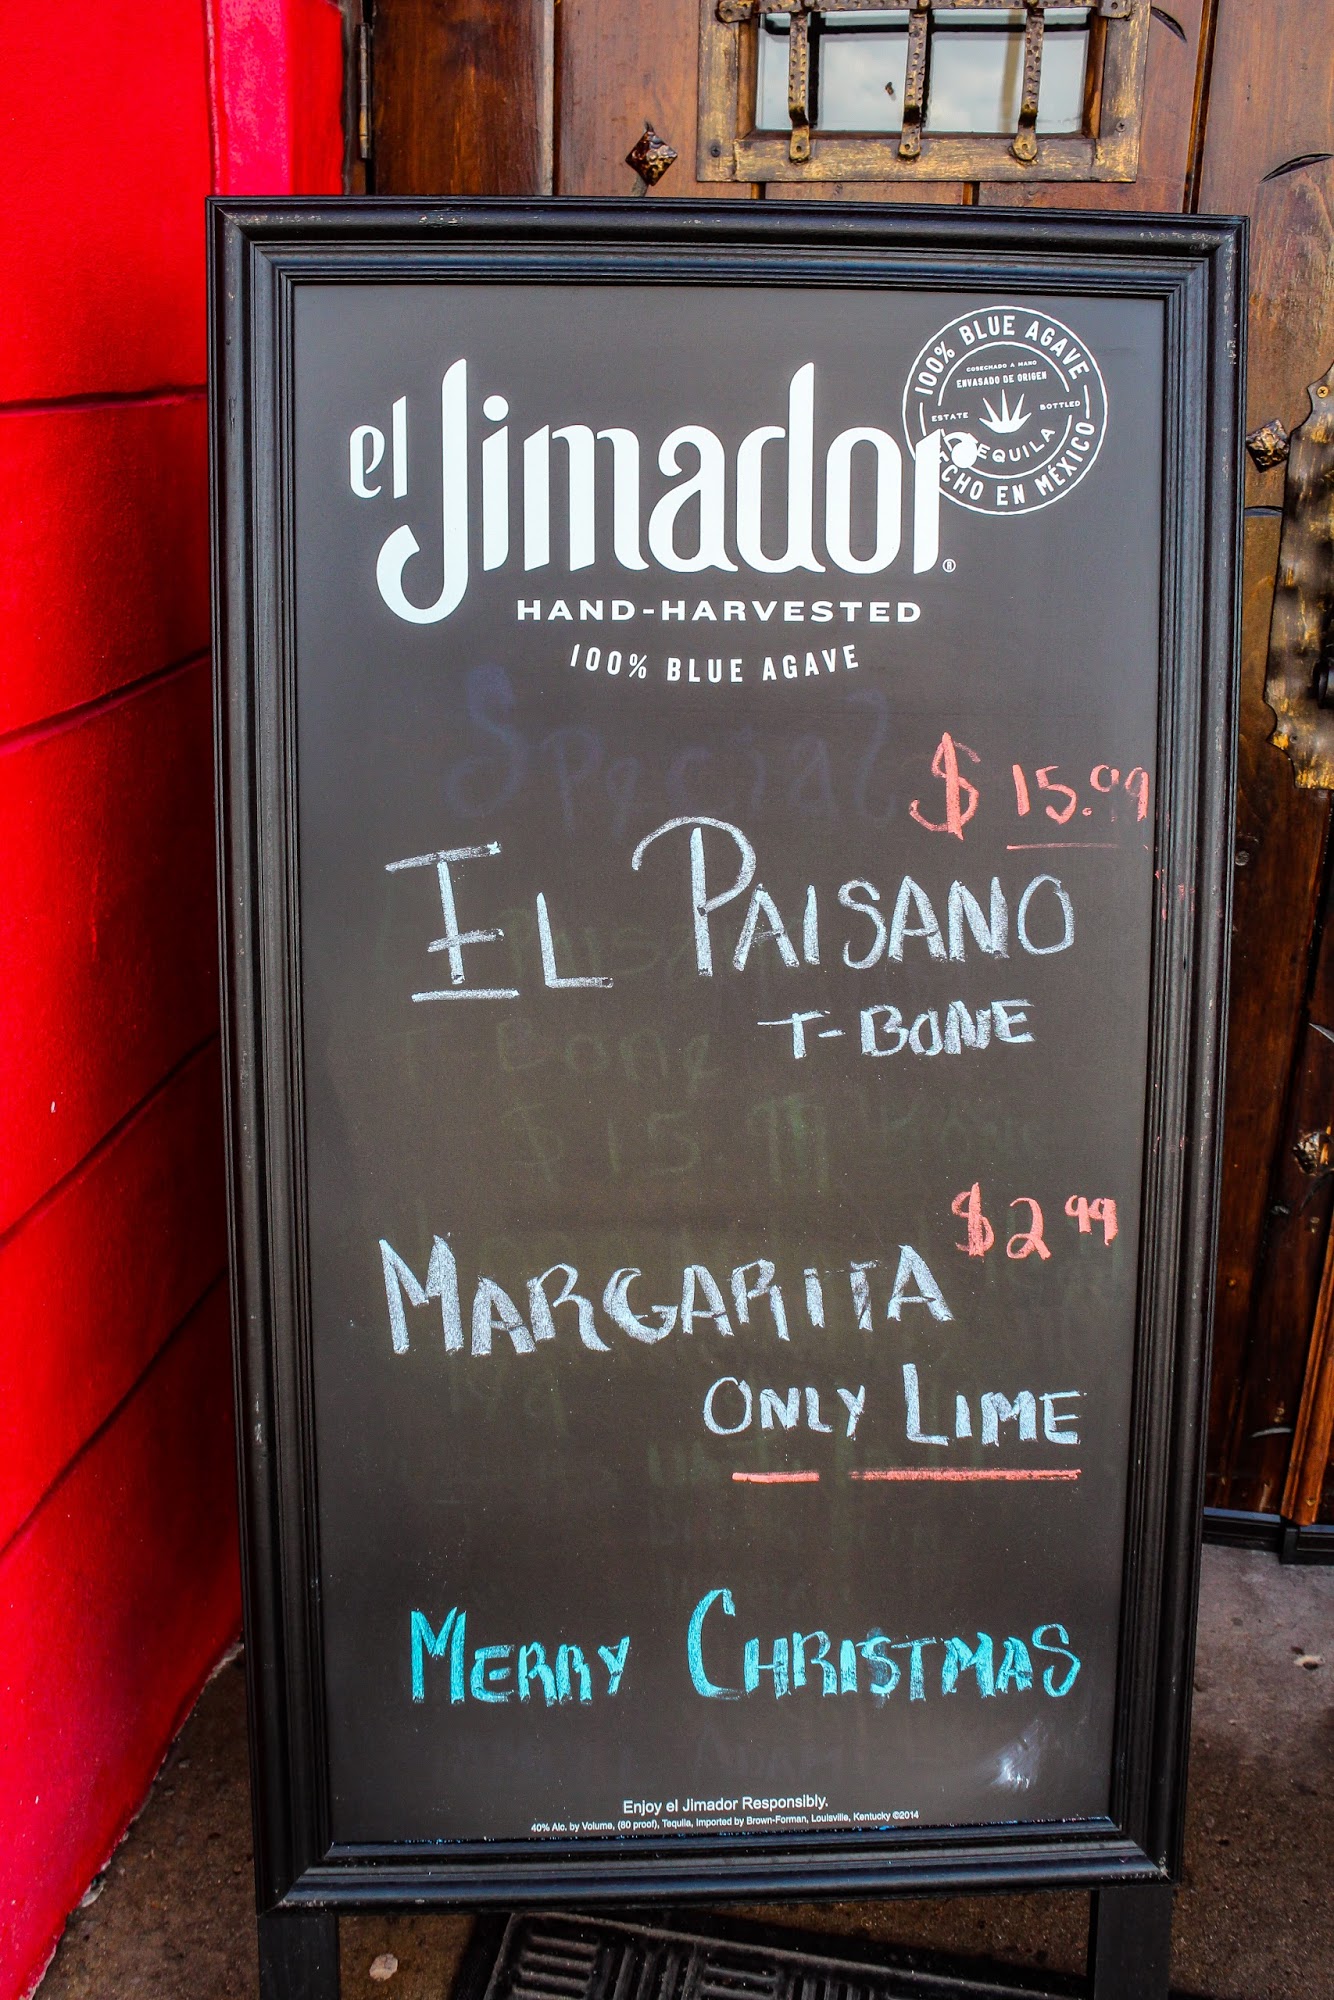 100% BLUE AGAVE
COSECHADO A MANO
ENVASADO DE ORIGEN
ESTATE BOTTLED
TEQUILA
HECHO EN MÉXICO
el Jimador®
HAND-HARVESTED
100% BLUE AGAVE
Specials
$ 15.99
EL PAISANO
T-BONE
T Bone
$ 15.99
$2.99
MARGARITA
ONLY LIME
MERRY CHRISTMAS
Enjoy el Jimador Responsibly.
40% Alc. by Volume, (80 proof), Tequila, Imported by Brown-Forman, Louisville, Kentucky ©2014